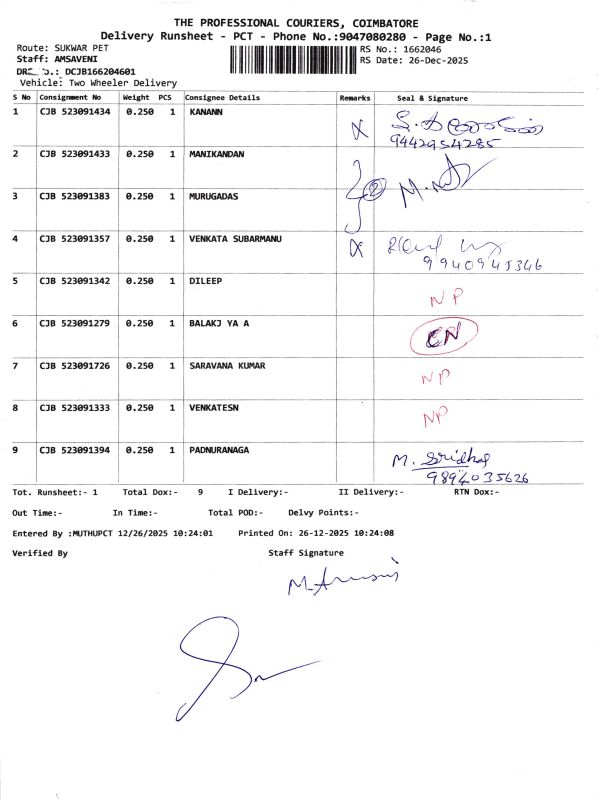 THE PROFESSIONAL COURIERS, COIMBATORE
Delivery Runsheet - PCT - Phone No.:9047080280 - Page No.:1
Route: SUKWAR PET RS No.: 1662046
Staff: AMSAVENI RS Date: 26-Dec-2025
DRS No.: DCJB166204601
Vehicle: Two Wheeler Delivery
S No Consignment No Weight PCS Consignee Details Remarks Seal & Signature
1 CJB 523091434 0.250 1 KANANN
9442954285
2 CJB 523091433 0.250 1 MANIKANDAN
2
3 CJB 523091383 0.250 1 MURUGADAS
4 CJB 523091357 0.250 1 VENKATA SUBARMANU
9940945346
5 CJB 523091342 0.250 1 DILEEP
NP
6 CJB 523091279 0.250 1 BALAKJ YA A
CN
7 CJB 523091726 0.250 1 SARAVANA KUMAR
NP
8 CJB 523091333 0.250 1 VENKATESN
NP
9 CJB 523091394 0.250 1 PADNURANAGA
M. Sridhar
9894035626
Tot. Runsheet:- 1 Total Dox:- 9 I Delivery:- II Delivery:- RTN Dox:-
Out Time:- In Time:- Total POD:- Delvy Points:-
Entered By :MUTHUPCT 12/26/2025 10:24:01 Printed On: 26-12-2025 10:24:08
Verified By Staff Signature